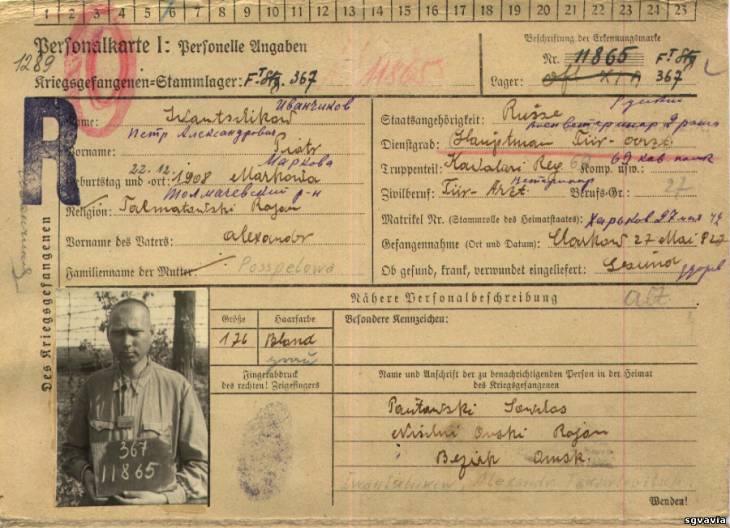 1 2 3 4 5 6 7 8 9 10 11 12 13 14 15 16 17 18 19 20 21 22 23 24 25
Personalkarte I: Personelle Angaben
1289
Kriegsgefangenen-Stammlager: 367
11865
Beschriftung der Erkennungsmarke
Nr. 11865
Lager: 367
R
Des Kriegsgefangenen
Name: Иванчиков
Петр Александрович
Vorname: Piotr
Маркова
Geburtstag und -ort: 22.12. 1908 Markowa
Толмачевский р-н
Religion: Rajon
Vorname des Vaters: Alexandr
Familienname der Mutter: Posspelowa
Staatsangehörigkeit: Russe
Dienstgrad: Hauptman Tür-Arzt
Truppenteil: Kavalari Reg 69 Komp. usw.: 69 кав полк
Zivilberuf: Tür-Arzt ветеринар Berufs-Gr.: 27
Matrikel Nr. (Stammrolle des Heimatstaates): Харьков 27 мая 42
Gefangennahme (Ort und Datum): Charkow 27 Mai
Ob gesund, krank, verwundet eingeliefert: Gesund здоров
Nähere Personalbeschreibung
Größe
Haarfarbe
Besondere Kennzeichen:
176
Bland
grau
Fingerabdruck
des rechten! Zeigefingers
Name und Anschrift der zu benachrichtigenden Person in der Heimat
des Kriegsgefangenen
Rajan
Bezirk Omsk.
Wenden!
367
11865
sgvavia